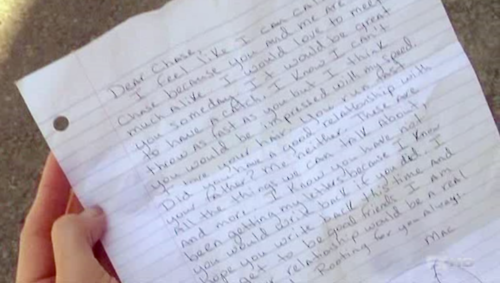 Dear Chase,
I feel like I can call
Chase because you and me are
much alike. I would love to meet
you someday. It would be great
to have a catch. I know I can't
throw as fast as you but I think
you would be impressed with my speed.
I love your hair. You run fast.
Did you have a good relationship with
your father? Me neither. These are
All the things we can talk about,
And more. I know you have not
been getting my letters because I know
you would write back if you did. I
hope you write back this time and
get to be good friends. I am
relationship would be a real
Rooting for you always!
Mac